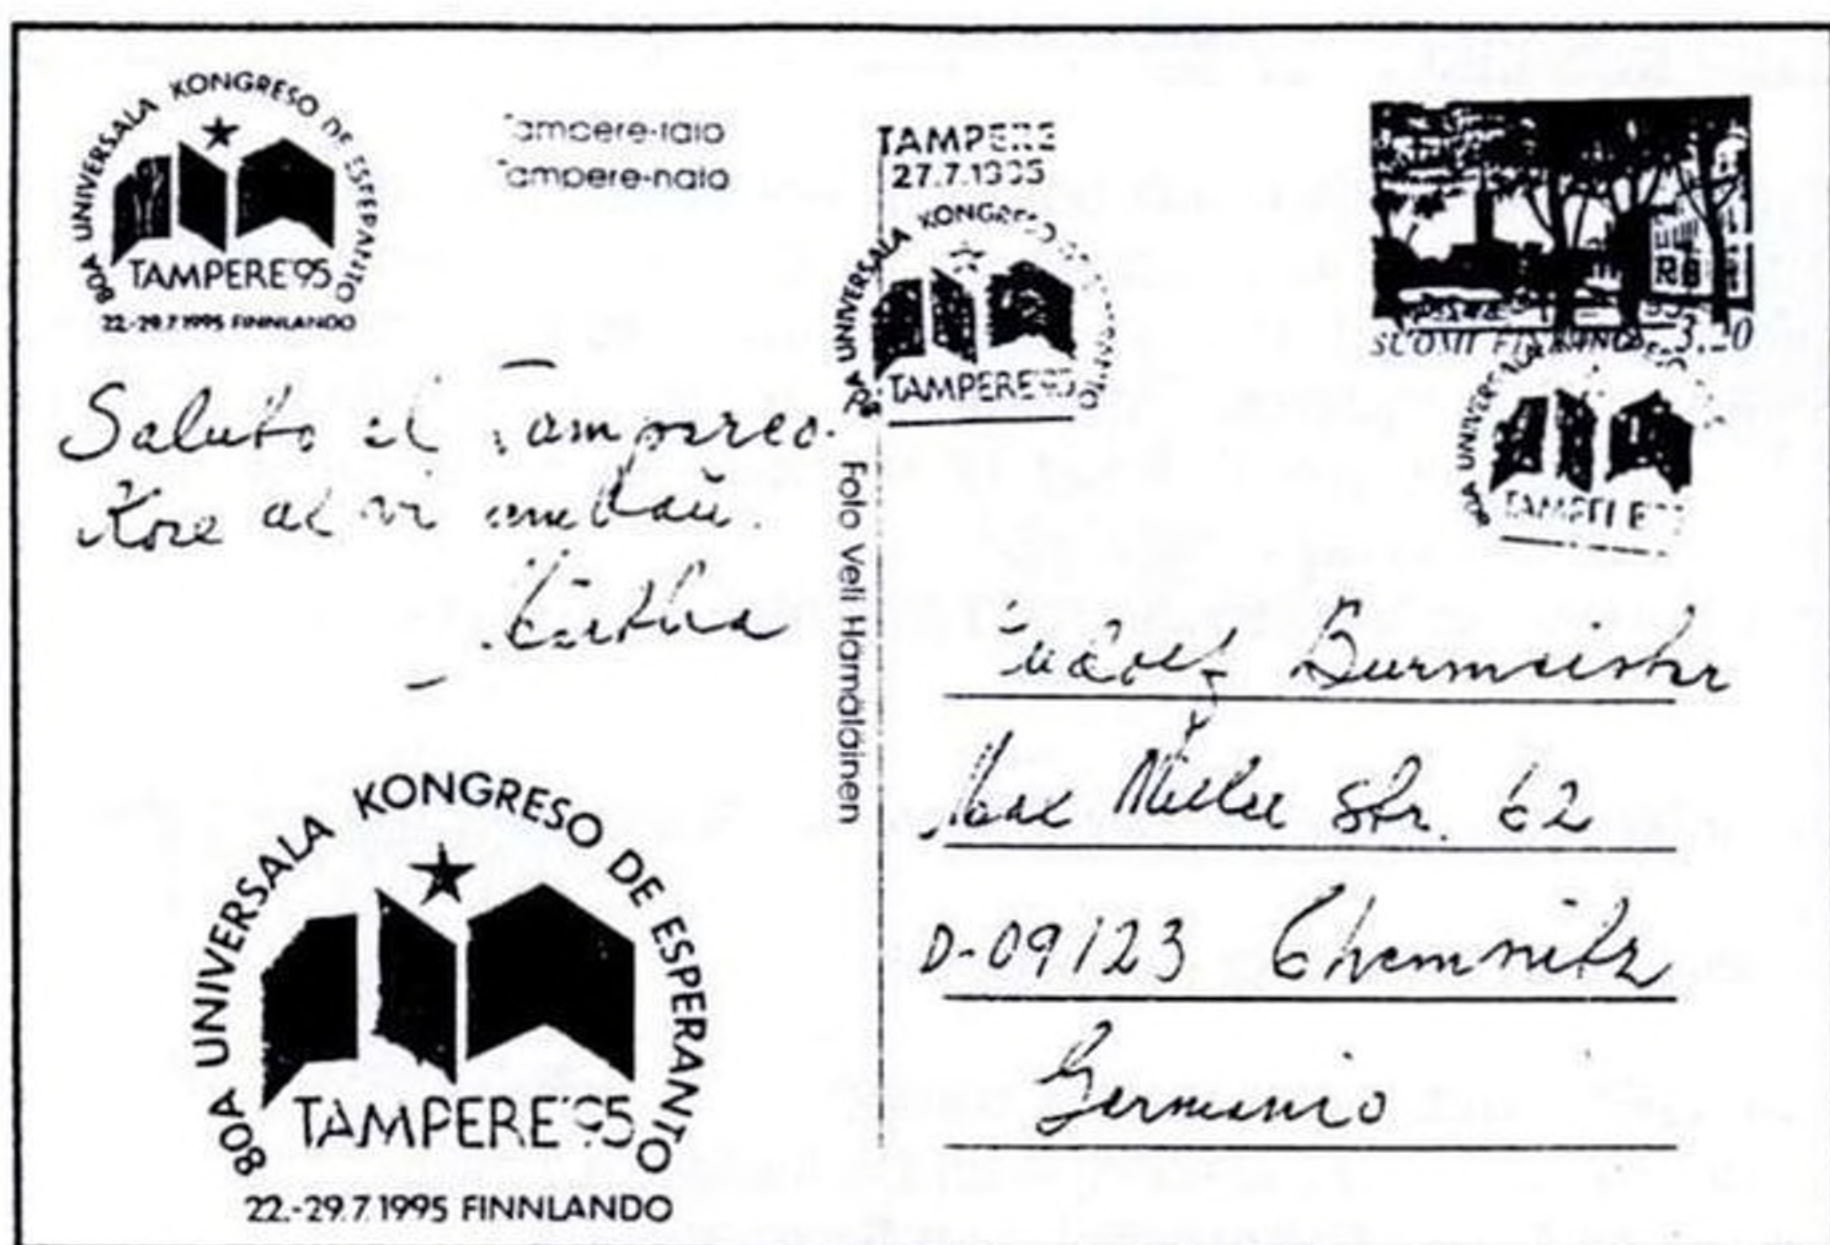 80A UNIVERSALA KONGRESO DE ESPERANTO
TAMPERE'95
22.-29.7.1995 FINNLANDO
Tampere-talo
Tampere-halo
TAMPERE
27.7.1995
80A UNIVERSALA KONGRESO
TAMPERE'95
SUOMI FINLAND
80A UNIVERSALA
Saluto el Tampereo.
Kore al vi ambaŭ.
Foto Veli Hämäläinen
Rudolf Burmeister
Max Müller Str. 62
D-09123 Chemnitz
Germanio
80A UNIVERSALA KONGRESO DE ESPERANTO
TAMPERE'95
22.-29.7.1995 FINNLANDO